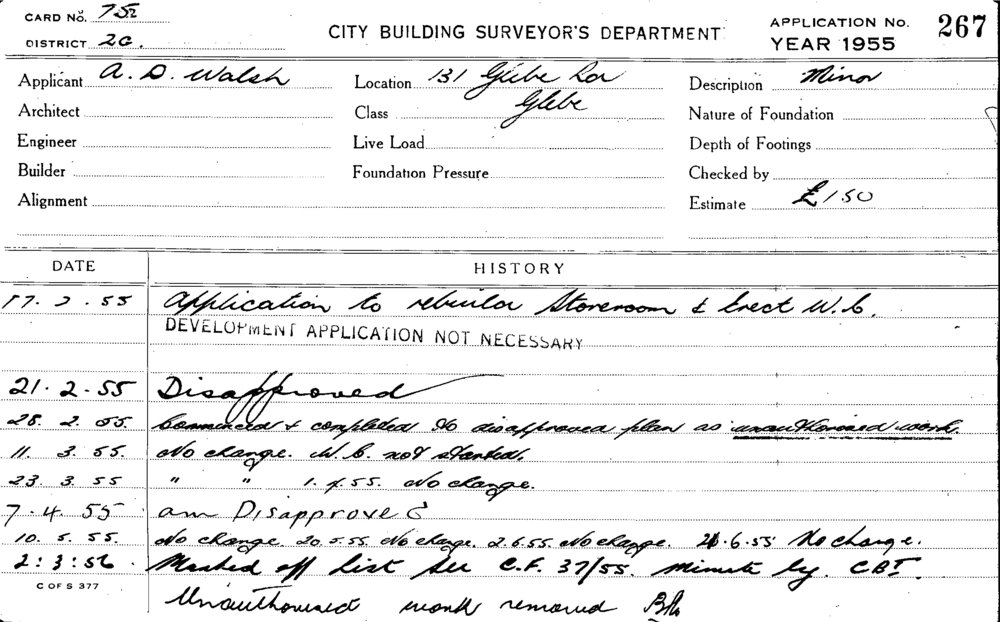 CARD No. 752
DISTRICT 2G.
CITY BUILDING SURVEYOR'S DEPARTMENT
APPLICATION No. 267
YEAR 1955
Applicant A. D. Walsh
Location 131 Glebe Rd
Description Minor
Architect
Class Glebe
Nature of Foundation
Engineer
Live Load
Depth of Footings
Builder
Foundation Pressure
Checked by
Alignment
Estimate £150
DATE HISTORY
17. 2. 55 Application to rebuild Storeroom & Erect W.C.
DEVELOPMENT APPLICATION NOT NECESSARY
21. 2. 55 Disapproved
28. 2. 55. Commenced & completed to disapproved plan as unauthorised work.
11. 3. 55. No change. W.C. not started.
23. 3. 55 " " 1. 4. 55. No change.
7. 4. 55 am Disapproved
10. 5. 55. No change. 20.5.55. No change. 2.6.55. No change. 21.6.55 No change.
2:3:56 Marked off List See C.F. 37/55. Minute by. CBI.
C OF S 377
Unauthorised work removed